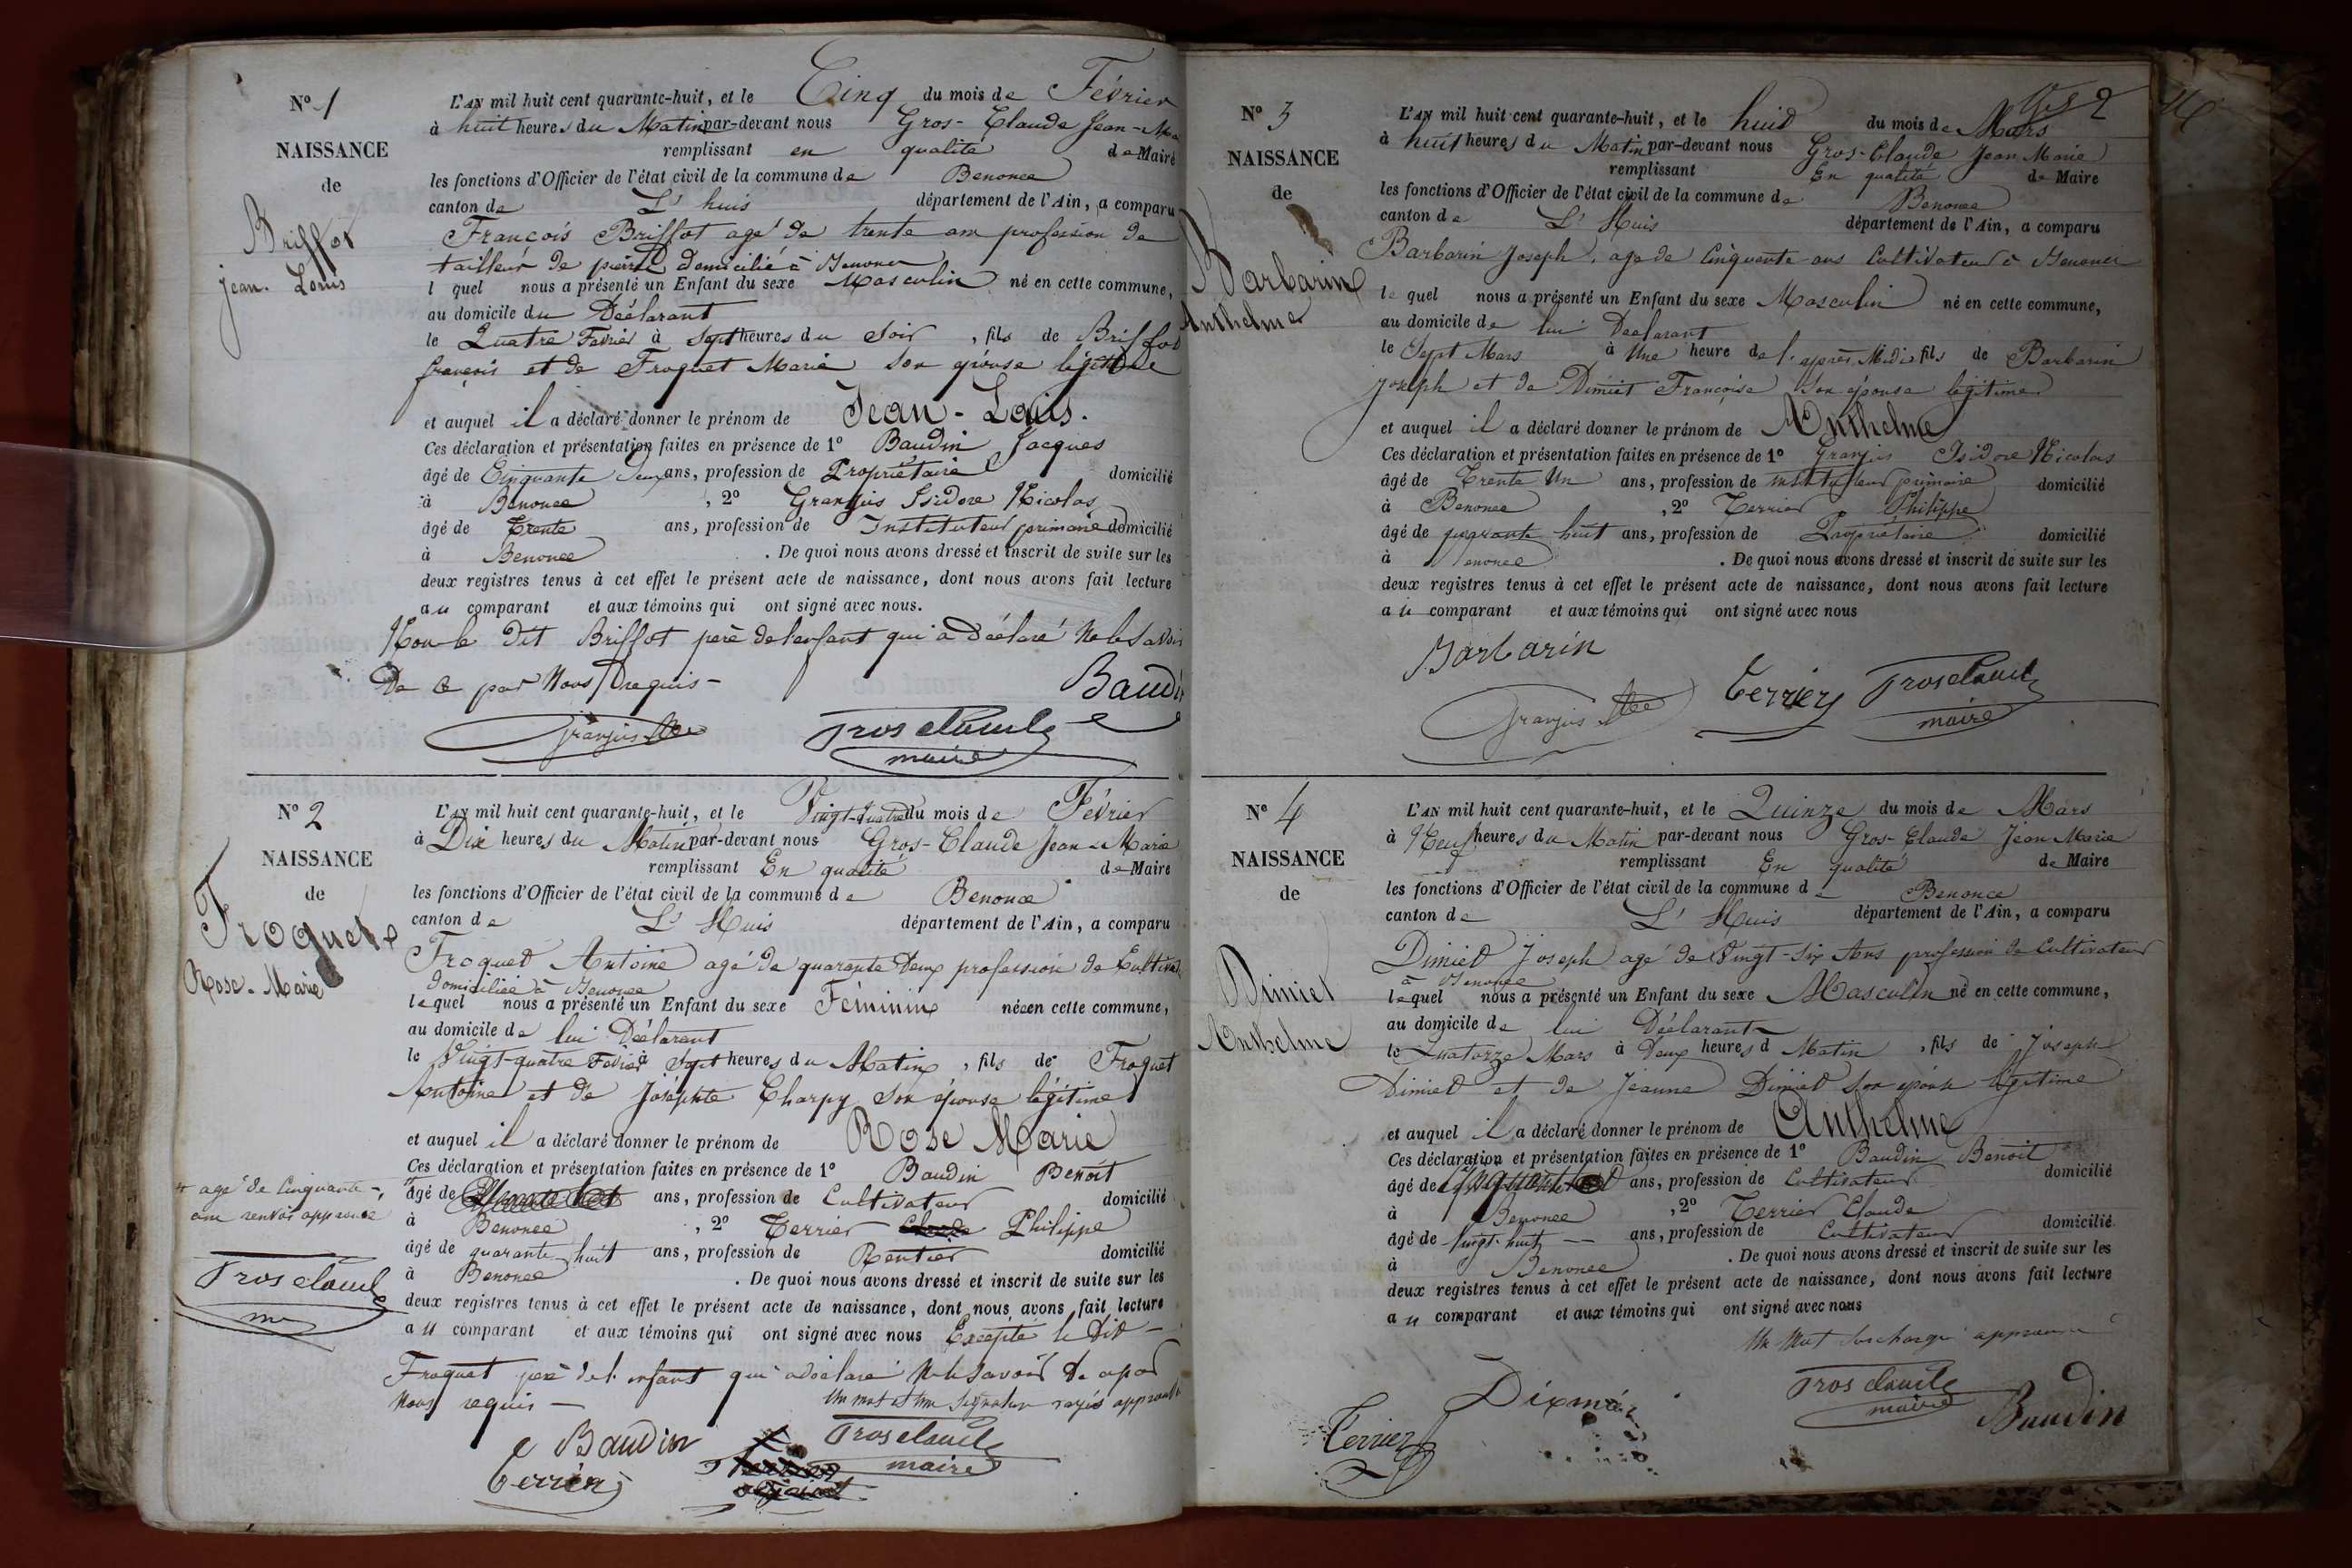 N° 1
NAISSANCE
de
Briffot
jean. Louis
L'AN mil huit cent quarante-huit, et le Cinq du mois de Février
à huit heures du Matin par-devant nous Gros-Claude Jean-
remplissant en qualité de Maire
les fonctions d'Officier de l'état civil de la commune de Benonce
canton de L'huis département de l'Ain, a comparu
François Briffot agé de trente ans profession de
tailleur de pierre domicilié à Benonce
l quel nous a présenté un Enfant du sexe Masculin né en cette commune,
au domicile du Déclarant
le Quatre Février à Sept heures du Soir, fils de Briffot
françois et de Froquet Marie Son épouse légitime
et auquel il a déclaré donner le prénom de Jean-Louis.
Ces déclaration et présentation faites en présence de 1° Baudin Jacques
âgé de Cinquante deux ans, profession de Propriétaire domicilié
à Benonce, 2° Granjus Isidore Nicolas
âgé de Trente ans, profession de Instituteur primaire domicilié
à Benonce. De quoi nous avons dressé et inscrit de suite sur les
deux registres tenus à cet effet le présent acte de naissance, dont nous avons fait lecture
au comparant et aux témoins qui ont signé avec nous.
Non le dit Briffot père de l'enfant qui a déclaré ne le savoir
De ce par Nous requis -
Baudin
Granjus
Grosclaude
maire
N° 2
NAISSANCE
de
Froquet
Rose-Marie
L'AN mil huit cent quarante-huit, et le Vingt-quatre du mois de Février
à Dix heures du Matin par-devant nous Gros-Claude Jean-Marie
remplissant En qualité de Maire
les fonctions d'Officier de l'état civil de la commune de Benonce
canton de L'Huis département de l'Ain, a comparu
Froquet Antoine agé de quarante deux profession de Cultivat
domiciliée à Benonce
lequel nous a présenté un Enfant du sexe Féminin née en cette commune,
au domicile de lui Déclarant
le Vingt-quatre Février à Sept heures du Matin, fils de Froquet
Antoine et de Joséphte Charpy Son épouse légitime
et auquel il a déclaré donner le prénom de Rose Marie
Ces déclaration et présentation faites en présence de 1° Baudin Benoit
âgé de ans, profession de Cultivateur domicilié
+ agé de Cinquante -
ans renvoi approuvé
Grosclaude
à Benonce, 2° Terrier Philippe
âgé de quarante huit ans, profession de Rentier domicilié
à Benonce. De quoi nous avons dressé et inscrit de suite sur les
deux registres tenus à cet effet le présent acte de naissance, dont nous avons fait lecture
au comparant et aux témoins qui ont signé avec nous Excepté le Dit -
Froquet père de l'enfant qui a déclaré ne le savoir de ce par
Nous requis -
Un mot et une signature rayés approuvé
Baudin
Grosclaude
maire
Terrier
N° 3
NAISSANCE
de
Barbarin
Anthelme
2
L'AN mil huit cent quarante-huit, et le huit du mois de Mars
à huit heures du Matin par-devant nous Gros-Claude Jean Marie
remplissant En qualité de Maire
les fonctions d'Officier de l'état civil de la commune de Benonce
canton de L'Huis département de l'Ain, a comparu
Barbarin Joseph, age de Cinquante ans Cultivateur à Benonce
le quel nous a présenté un Enfant du sexe Masculin né en cette commune,
au domicile de lui Déclarant
le Sept Mars à Une heure de l'après Midi fils de Barbarin
joseph et de Dimiet Françoise Son épouse légitime
et auquel il a déclaré donner le prénom de Anthelme
Ces déclaration et présentation faites en présence de 1° Granjus Isidore Nicolas
âgé de Trente Un ans, profession de instituteur primaire domicilié
à Benonce, 2° Terrier Philippe
âgé de quarante huit ans, profession de Propriétaire domicilié
à Benonce. De quoi nous avons dressé et inscrit de suite sur les
deux registres tenus à cet effet le présent acte de naissance, dont nous avons fait lecture
au comparant et aux témoins qui ont signé avec nous
Barbarin
Granjus
Terrier
Grosclaude
maire
N° 4
NAISSANCE
de
Dimiet
Anthelme
L'AN mil huit cent quarante-huit, et le Quinze du mois de Mars
à Neuf heures du Matin par-devant nous Gros-Claude Jean Marie
remplissant En qualité de Maire
les fonctions d'Officier de l'état civil de la commune de Benonce
canton de L'Huis département de l'Ain, a comparu
Dimiet Joseph agé de Vingt-Six Ans profession de Cultivateur
à Benonce
lequel nous a présenté un Enfant du sexe Masculin né en cette commune,
au domicile de lui Déclarant
le Quatorze Mars à Deux heures d Matin, fils de Joseph
Dimiet et de Jeanne Dimiet Son épouse légitime
et auquel il a déclaré donner le prénom de Anthelme
Ces déclaration et présentation faites en présence de 1° Baudin Benoit
âgé de ans, profession de Cultivateur domicilié
à Benonce, 2° Terrier Claude
âgé de Vingt-huit ans, profession de Cultivateur domicilié
à Benonce. De quoi nous avons dressé et inscrit de suite sur les
deux registres tenus à cet effet le présent acte de naissance, dont nous avons fait lecture
au comparant et aux témoins qui ont signé avec nous
Un Mot Surchargé approuvé
Grosclaude
maire
Baudin
Terrier